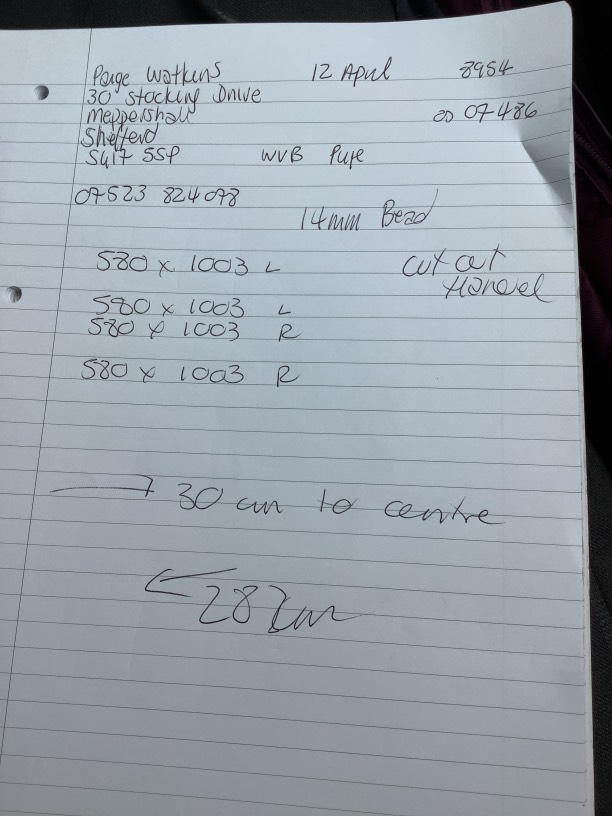 Paige Watkins 12 April 8954
30 Stocking Drive
Meppershall 07486
Shefferd
SG17 5SP WVB Pure
07523 824078
14mm Bead
580 x 1003 L cut out
580 x 1003 L
580 x 1003 R
580 x 1003 R
→ 30 cm to centre
←